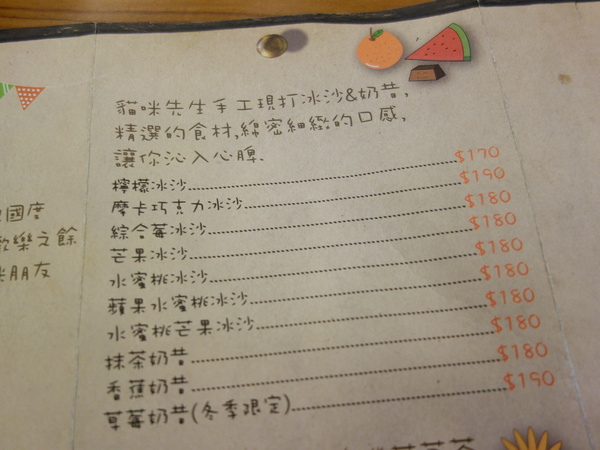 貓咪先生手工現打冰沙&奶昔,
精選的食材,綿密細緻的口感,
讓你沁入心脾.
檸檬冰沙 $170
摩卡巧克力冰沙 $190
綜合莓冰沙 $180
芒果冰沙 $180
水蜜桃冰沙 $180
蘋果水蜜桃冰沙 $180
水蜜桃芒果冰沙 $180
抹茶奶昔 $180
香蕉奶昔 $180
草莓奶昔(冬季限定) $190
國度
歡樂之餘
朋友